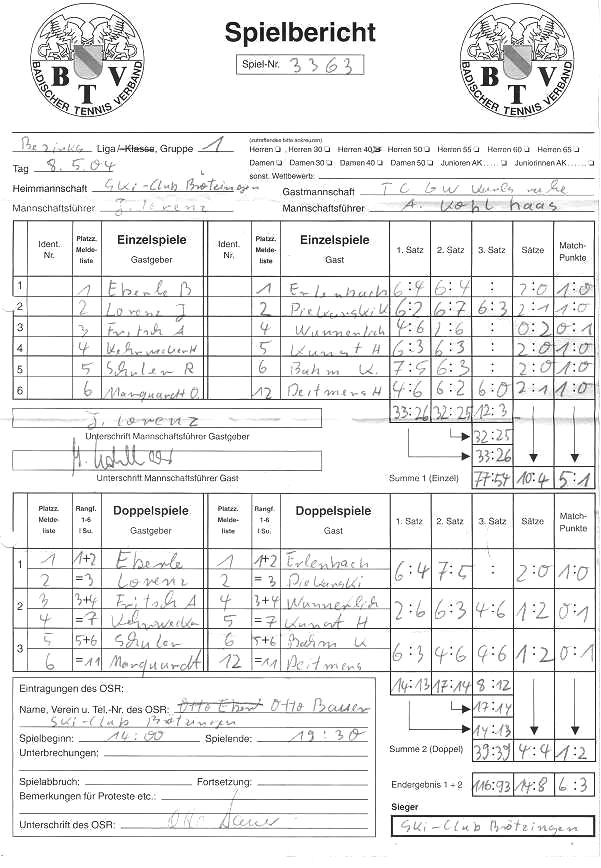 Spielbericht
Spiel-Nr. 3363
BADISCHER TENNIS VERBAND
BTV
BADISCHER TENNIS VERBAND
BTV
Bezirks Liga/-Klasse, Gruppe 1
(zutreffendes bitte ankreuzen)
Herren Herren 30 Herren 40 Herren 50 Herren 55 Herren 60 Herren 65
Tag 8.5.04
Damen Damen 30 Damen 40 Damen 50 Junioren AK...... Juniorinnen AK......
sonst. Wettbewerb:
Heimmannschaft Ski-Club Brötzingen Gastmannschaft TC GW Karlsruhe
Mannschaftsführer J. Lorenz Mannschaftsführer A. Kohlhaas
Ident. Nr. Platzz. Melde-liste Einzelspiele Gastgeber Ident. Nr. Platzz. Melde-liste Einzelspiele Gast 1. Satz 2. Satz 3. Satz Sätze Match-Punkte
1 1 Eberle B 1 Erlenbach 6:4 6:4 : 2:0 1:0
2 2 Lorenz J 2 Piekarski K 6:2 6:7 6:3 2:1 1:0
3 3 Fritsch A 4 Wunnerlich 4:6 1:6 0:2 0:1
4 4 H 5 Kunst H 6:3 6:3 : 2:0 1:0
5 5 Schuler R 6 Bahm K. 7:5 6:3 : 2:0 1:0
6 6 Marquardt O. 12 Deitmers H 4:6 6:2 6:0 2:1 1:0
33:26 32:25 12:3
J. Lorenz
Unterschrift Mannschaftsführer Gastgeber
32:25
33:26
Unterschrift Mannschaftsführer Gast
Summe 1 (Einzel) 77:54 10:4 5:1
Platzz. Melde-liste Rangf. 1-6 I Su. Doppelspiele Gastgeber Platzz. Melde-liste Rangf. 1-6 I Su. Doppelspiele Gast 1. Satz 2. Satz 3. Satz Sätze Match-Punkte
1 1 1+2 Eberle 1 1+2 Erlenbach
2 =3 Lorenz 2 =3 Piekarski
6:4 7:5 : 2:0 1:0
2 3 3+4 Fritsch A 4 3+4 Wunnerlich
4 =7 5 =7 Kunst H
2:6 6:3 4:6 1:2 0:1
3 5 5+6 Schuler 6 5+6 Bahm K
6 =11 Marquardt 12 =11 Deitmers
6:3 4:6 4:6 1:2 0:1
14:13 17:14 8:12
17:14
14:13
Summe 2 (Doppel) 39:39 4:4 1:2
Eintragungen des OSR:
Name, Verein u. Tel.-Nr. des OSR: Otto Bauer
Ski-Club Brötzingen
Spielbeginn: 14:00 Spielende: 19:30
Unterbrechungen:
Spielabbruch: Fortsetzung:
Bemerkungen für Proteste etc.: /
Unterschrift des OSR: Otto Bauer
Endergebnis 1 + 2 116:93 14:8 6:3
Sieger
Ski-Club Brötzingen